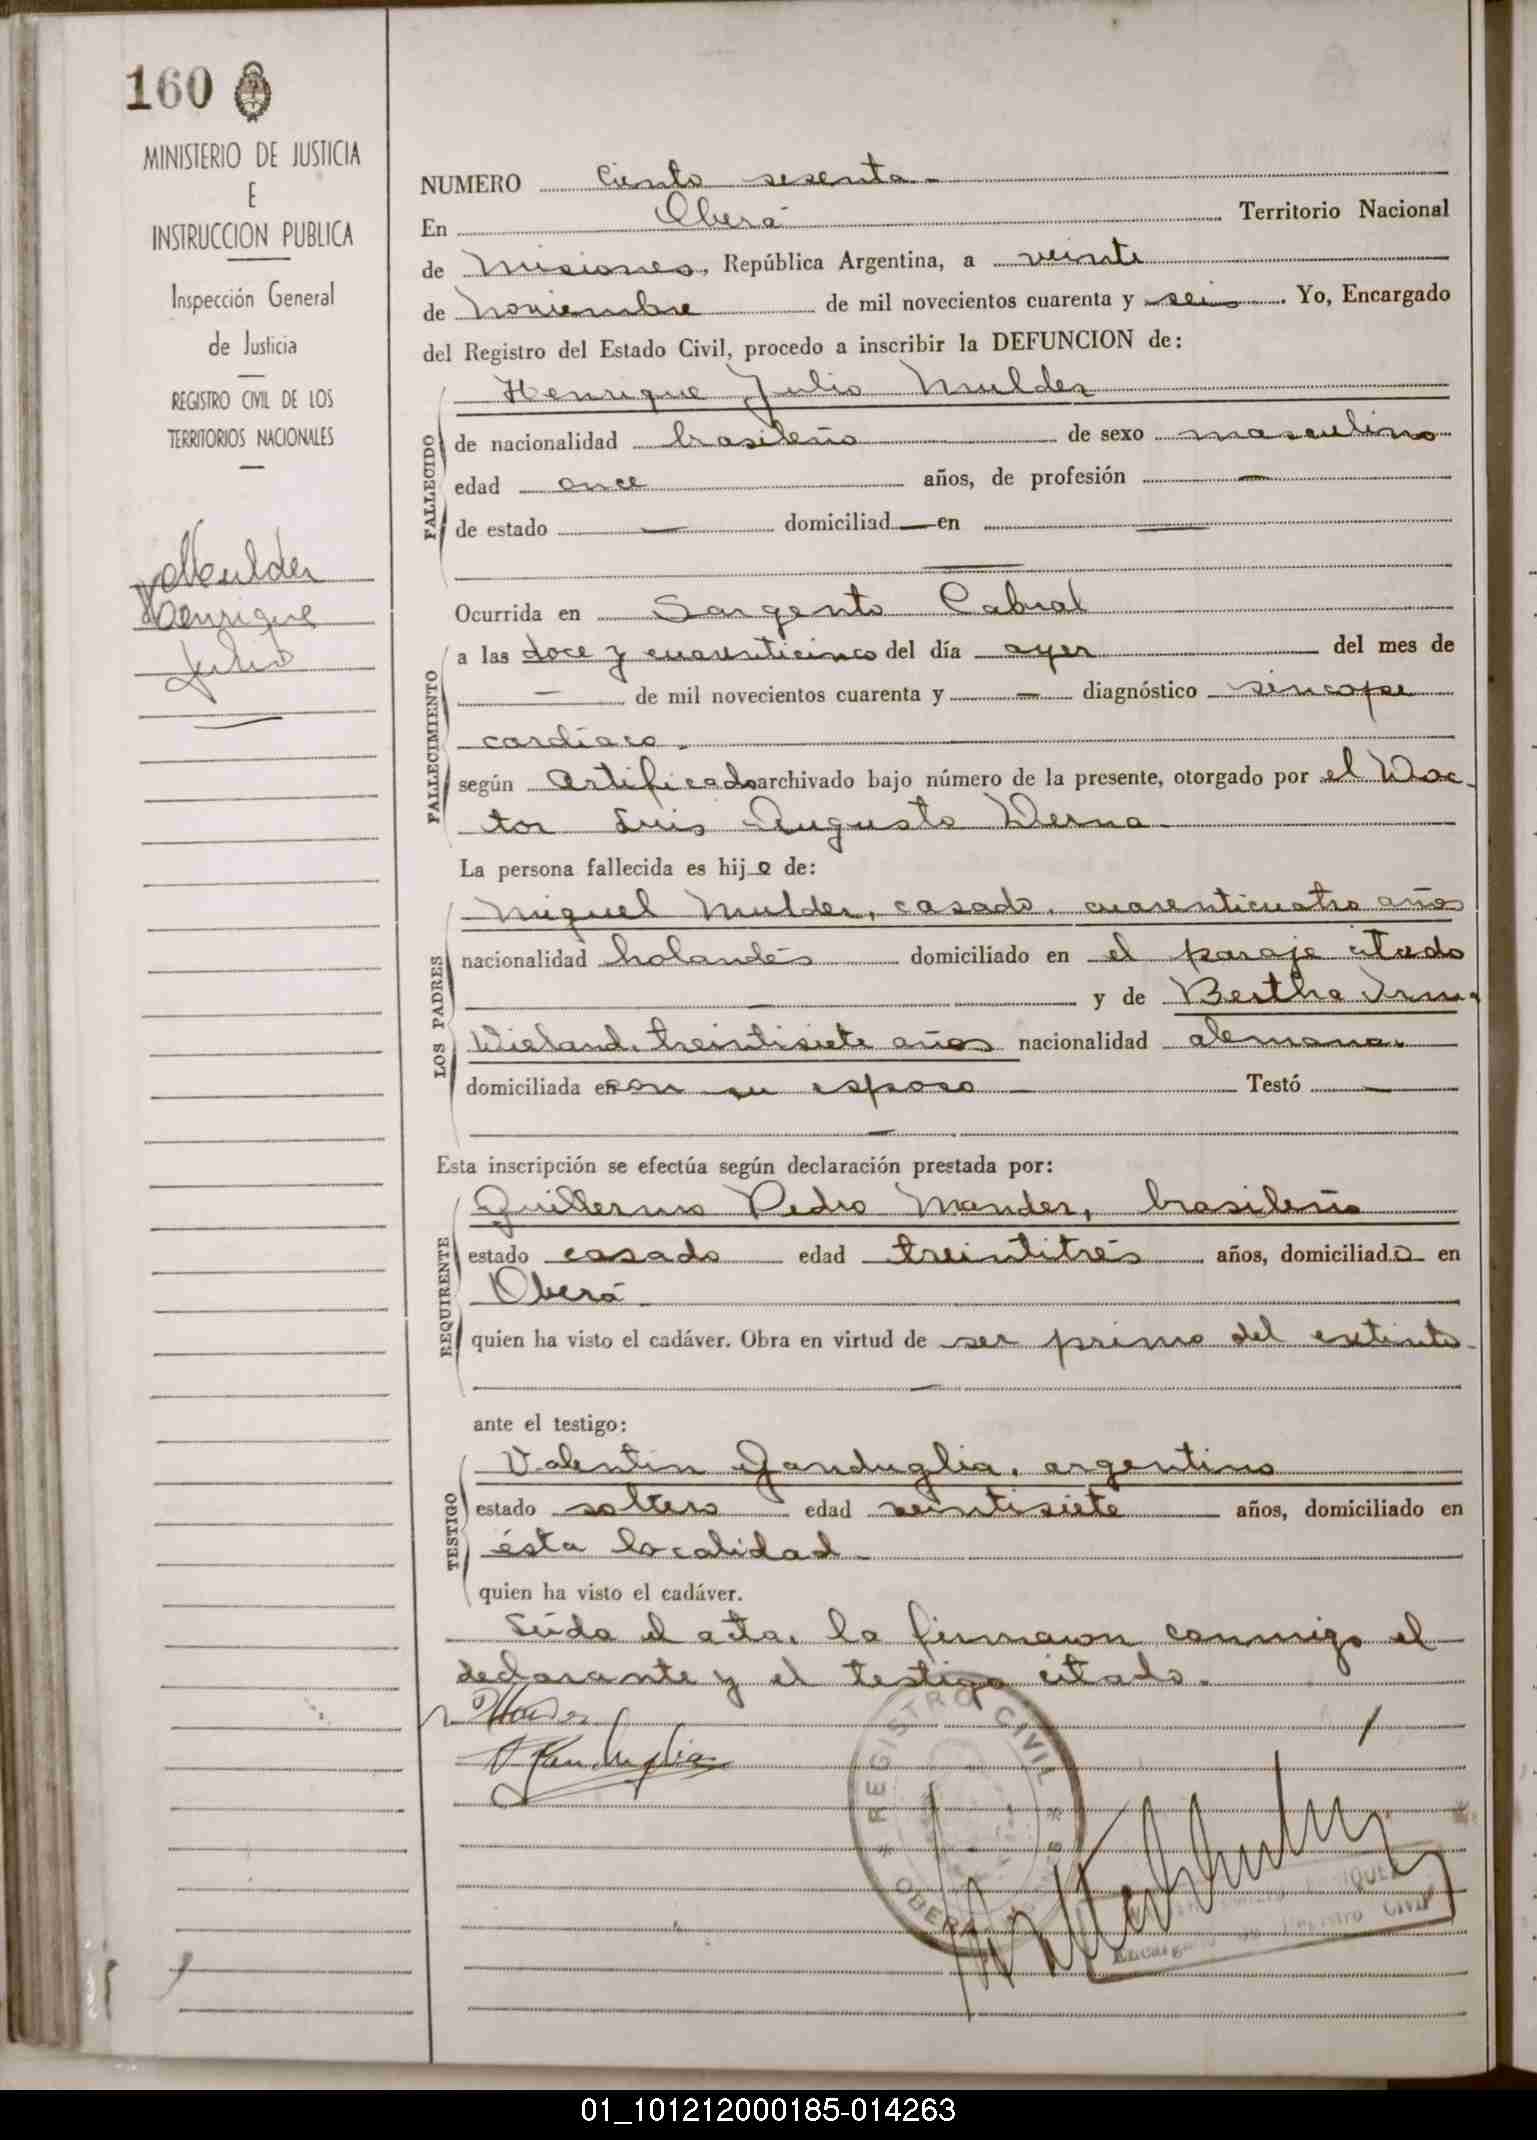 160
MINISTERIO DE JUSTICIA
E
INSTRUCCION PUBLICA
Inspección General
de Justicia
REGISTRO CIVIL DE LOS
TERRITORIOS NACIONALES
Mulder
Henrique
Julio
NUMERO Ciento sesenta.-
En Oberá Territorio Nacional
de Misiones, República Argentina, a veinte
de Noviembre de mil novecientos cuarenta y seis. Yo, Encargado
del Registro del Estado Civil, procedo a inscribir la DEFUNCION de:
Henrique Julio Mulder
FALLECIDO
de nacionalidad brasileño de sexo masculino
edad once años, de profesión —
de estado — domiciliad — en —
Ocurrida en Sargento Cabral
FALLECIMIENTO
a las doce y cuarenticinco del día ayer del mes de
— de mil novecientos cuarenta y — diagnóstico síncope
cardíaco.
según certificado archivado bajo número de la presente, otorgado por el Doc-
tor Luis Augusto Derna
La persona fallecida es hijo de:
LOS PADRES
Miguel Mulder, casado, cuarenticuatro años
nacionalidad holandés domiciliado en el paraje citado
— y de Bertha Irm.
Wieland, treintisiete años nacionalidad alemana.
domiciliada en con su esposo — Testó —
Esta inscripción se efectúa según declaración prestada por:
REQUIRENTE
Guillermo Pedro Mander, brasileño
estado casado edad treintitrés años, domiciliado en
Oberá
quien ha visto el cadáver. Obra en virtud de ser primo del extinto.
ante el testigo:
TESTIGO
Valentín Ganduglia, argentino
estado soltero edad veintisiete años, domiciliado en
ésta localidad.
quien ha visto el cadáver.
Leída el acta, la firmaron conmigo el
declarante y el testigo citado.
V Ganduglia
REGISTRO CIVIL
OBERA
Encargado de Registro Civil
01_101212000185-014263